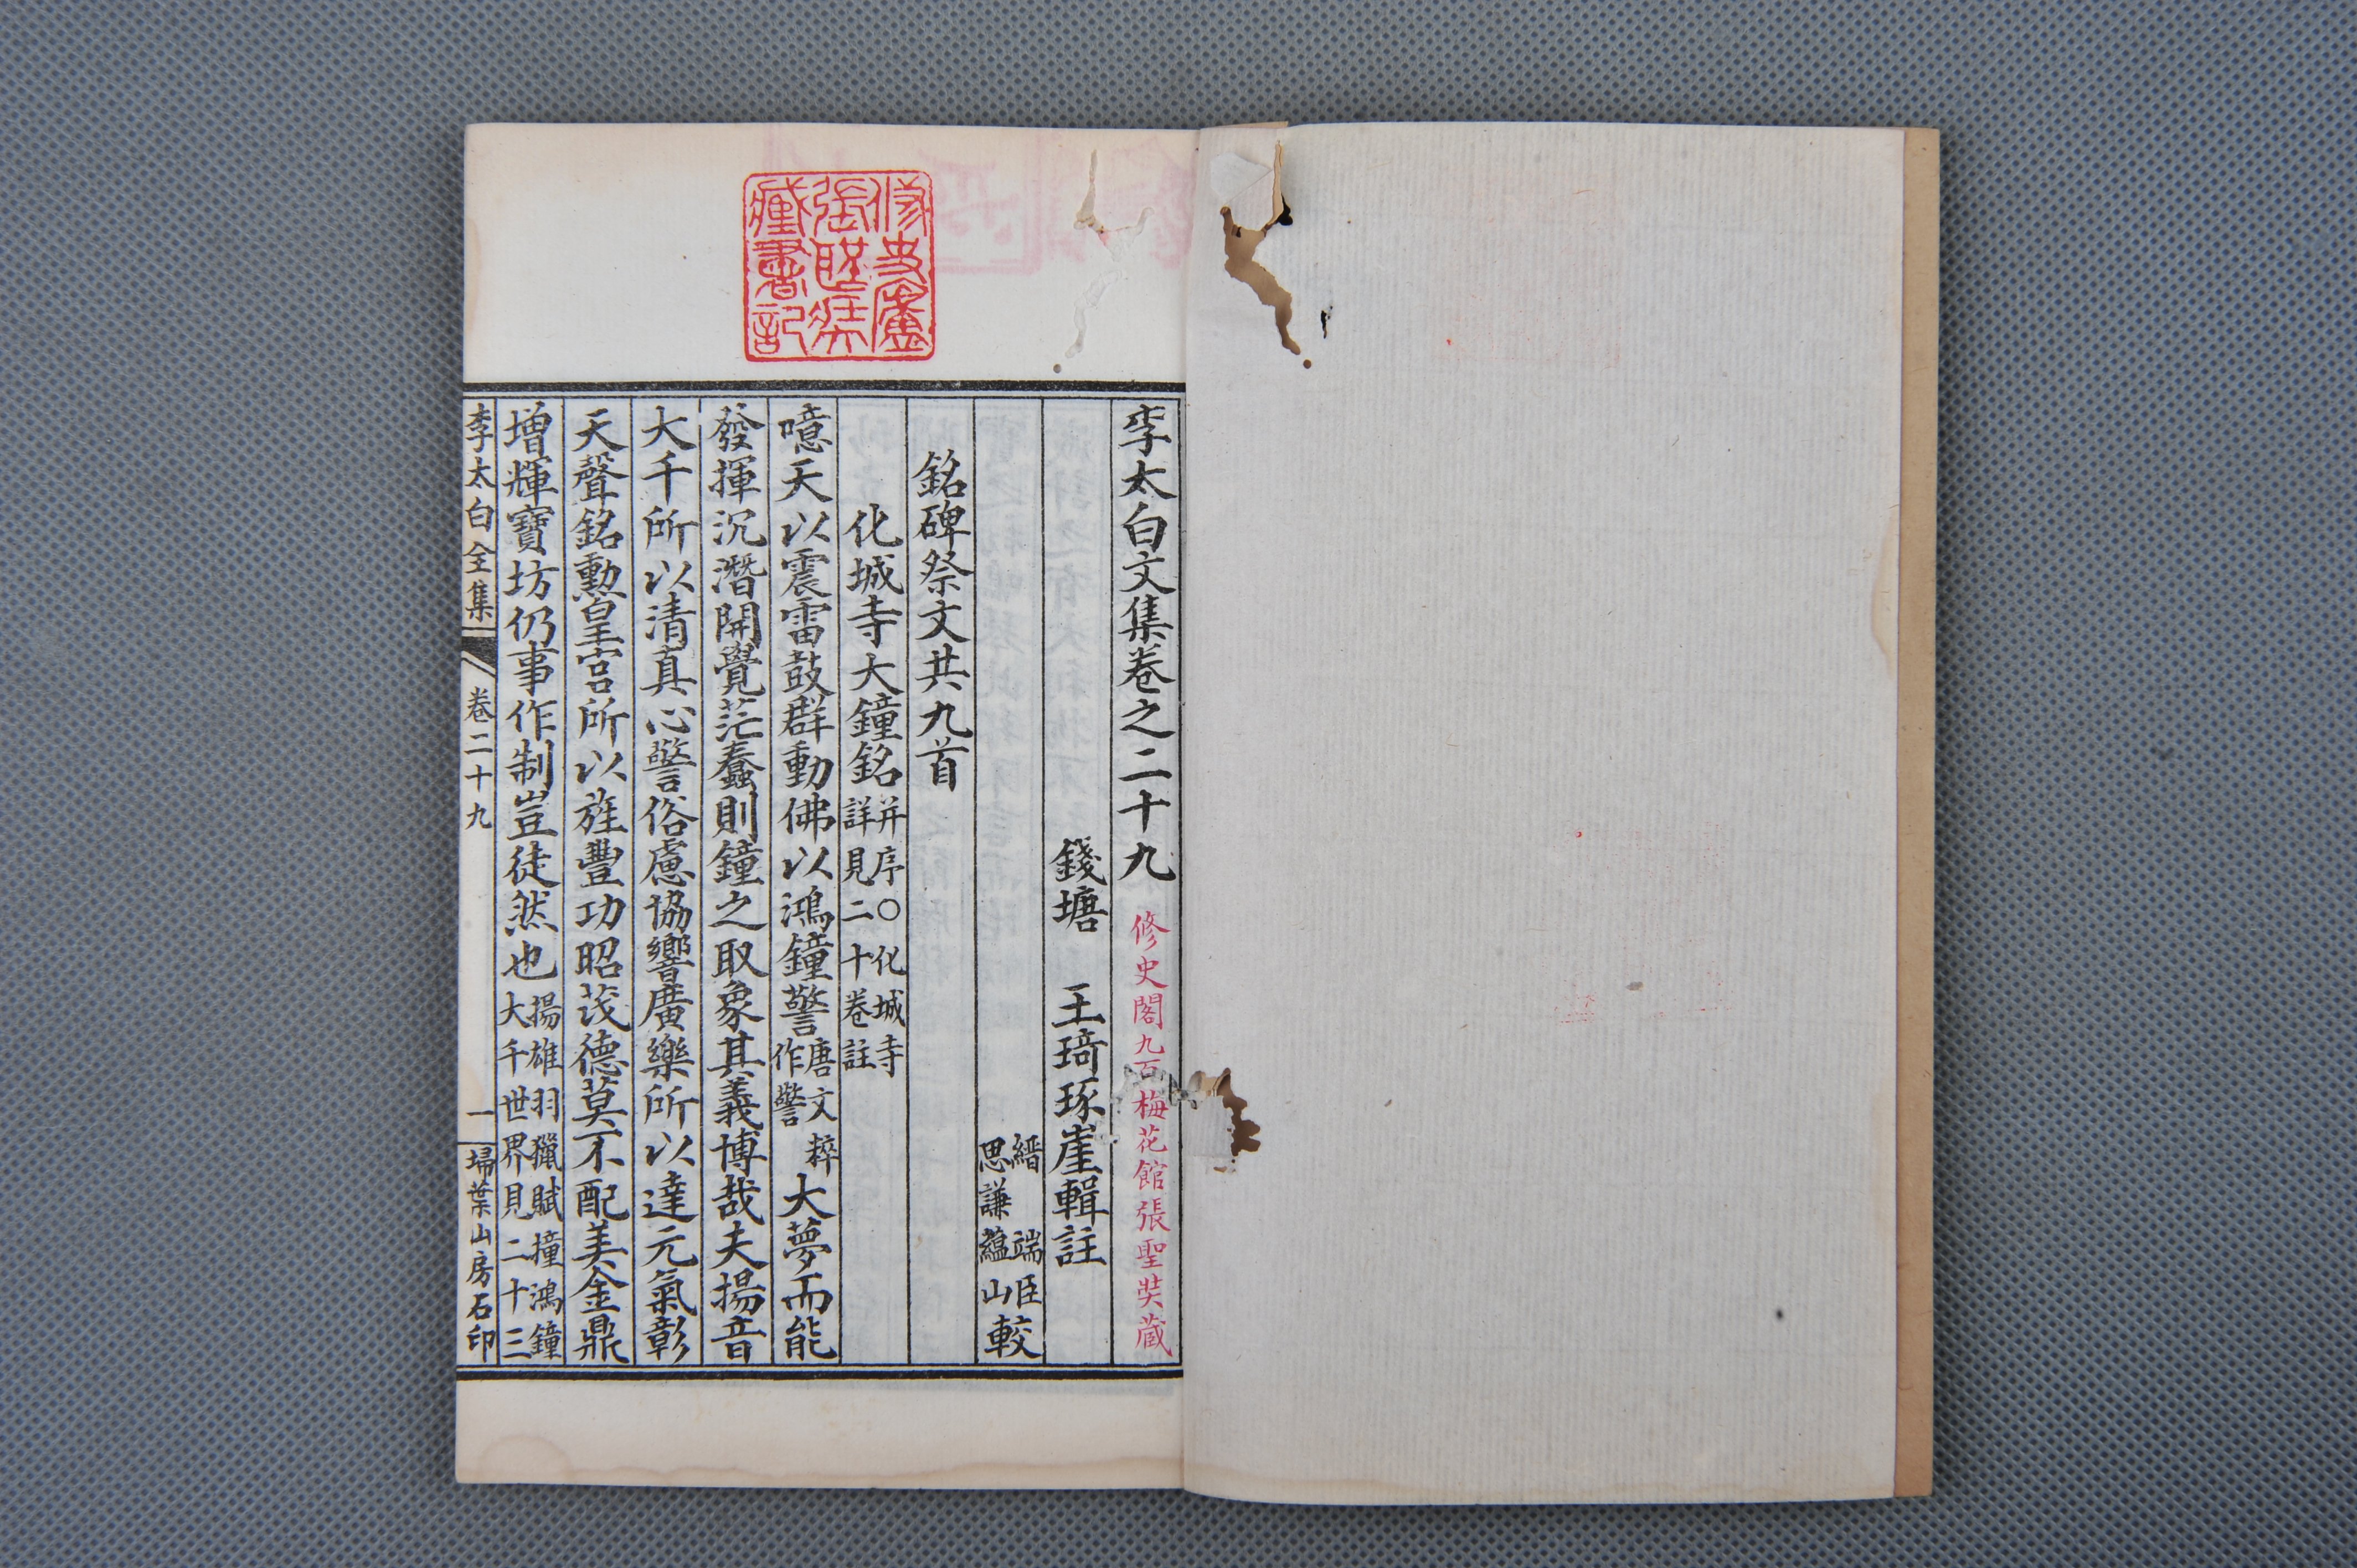 李太白文集卷之二十九
修史閣九百梅花館張聖奘藏
錢塘 王琦琢崖輯註
縉 端臣
思謙蘊山
較
銘碑祭文共九首
化城寺大鐘銘
并序〇化城寺
詳見二十卷註
噫天以震雷鼓群動佛以鴻鐘警
唐文粹
作驚
大夢而能
發揮沉潛開覺茫蠢則鐘之取象其義博哉夫揚音
大千所以清真心警俗慮協響廣樂所以達元氣彰
天聲銘勳皇宮所以旌豐功昭茂德莫不配美金鼎
增輝寶坊仍事作制豈徒然也
揚雄羽獵賦撞鴻鐘
大千世界見二十三
李太白全集
卷二十九
一
埽葉山房石印
修史廬
張聖奘
藏書記